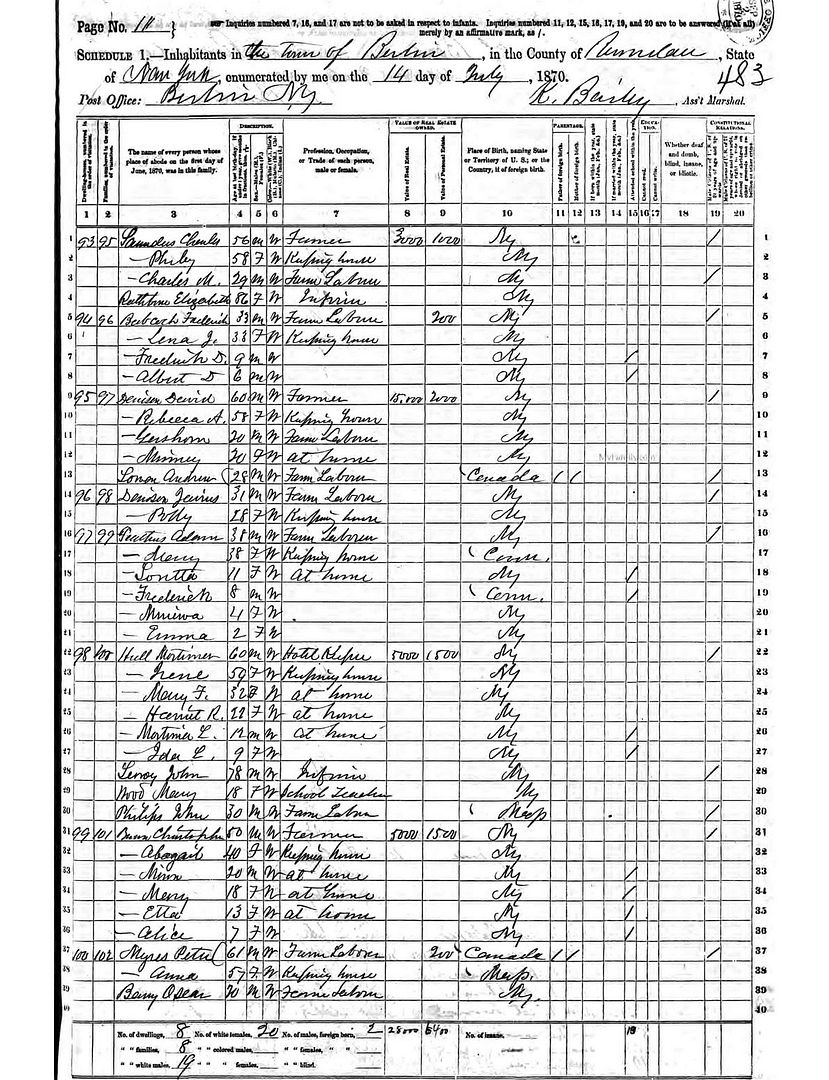 Page No. 14
Inquiries numbered 7, 16, and 17 are not to be asked in respect to infants. Inquiries numbered 11, 12, 15, 16, 17, 19, and 20 are to be answered (if at all)
merely by an affirmative mark, as /.
SCHEDULE 1.—Inhabitants in the town of Berlin, in the County of, State
of New York, enumerated by me on the 14 day of July, 1870.
483
Post Office: Berlin Ny
K. Bailey, Ass't Marshal.
DESCRIPTION. VALUE OF REAL ESTATE OWNED. PARENTAGE. EDUCATION. CONSTITUTIONAL RELATIONS.
The name of every person whose place of abode on the first day of June, 1870, was in this family.
Profession, Occupation, or Trade of each person, male or female.
Value of Real Estate. Value of Personal Estate.
Place of Birth, naming State or Territory of U. S.; or the Country, if of foreign birth.
Whether deaf and dumb, blind, insane, or idiotic.
1 2 3 4 5 6 7 8 9 10 11 12 13 14 15 16 17 18 19 20
1 93 95 Saunders Charles 56 m W Farmer 3000 1000 Ny / 1
2 — Pheby 58 F W Keeping house Ny 2
3 — Charles M. 29 m W Farm Labour Ny / 3
4 Rathbun Elizabeth 86 F W Ny 4
5 94 96 Babcock Frederick 33 m W Farm Labour 200 Ny / 5
6 — Lena J. 33 F W Keeping house Ny 6
7 — Frederick D. 9 m W Ny / 7
8 — Albert D 6 m W Ny / 8
9 95 97 Denison David 60 m W Farmer 15.000 2000 Ny / 9
10 — Rebecca A. 58 F W Keeping house Ny 10
11 — Gershom 20 M W Farm Labour Ny 11
12 — Minney 20 F W at home Ny 12
13 Andrew 28 M W Farm Labour Canada / / / 13
14 96 98 Denison 31 M W Farm Labour Ny / 14
15 — Polly 28 F W Keeping house Ny 15
16 97 99 Adam 38 m W Farm Laborer Ny / 16
17 — Mary 38 F W Keeping house Conn. 17
18 — Loretta 11 F W at home Ny / 18
19 — Frederick 8 m W Conn. / 19
20 — Minerva 4 F W Ny 20
21 — Emma 2 F W Ny 21
22 98 100 Hull Mortimer 60 m W Hotel Keeper 5000 1500 Ny / 22
23 — Irene 59 F W Keeping house Ny 23
24 — Mary F. 32 F W at home Ny 24
25 — Harriet R. 22 F W at home Ny 25
26 — Mortimer L. 12 m W at home Ny / 26
27 — Ida L. 9 F W Ny / 27
28 Leroy John 78 m W Ny / 28
29 Wood Mary 18 F W School Teacher Ny 29
30 Philips John 30 M W Farm Labor Mass / 30
31 99 101 Christopher 50 M W Farmer 5000 1500 Ny / 31
32 — Abagail 40 F W Keeping house Ny 32
33 — 20 M W at home Ny / 33
34 — Mary 18 F W at home Ny / 34
35 — Etta 13 F W at home Ny / 35
36 — Alice 7 F W Ny / 36
37 100 102 Myres Peter 61 M W Farm Laborer 200 Canada / / / 37
38 — Anna 57 F W Keeping house Mass. 38
39 Oscar 20 M W Farm Labour Ny. 39
40 40
No. of dwellings, 8 No. of white females, 20 No. of males, foreign born, 2 28000 6400 No. of insane, 13
" " families, 8 " " colored males, " " females, " "
" " white males, 19 " " " females, " " blind.